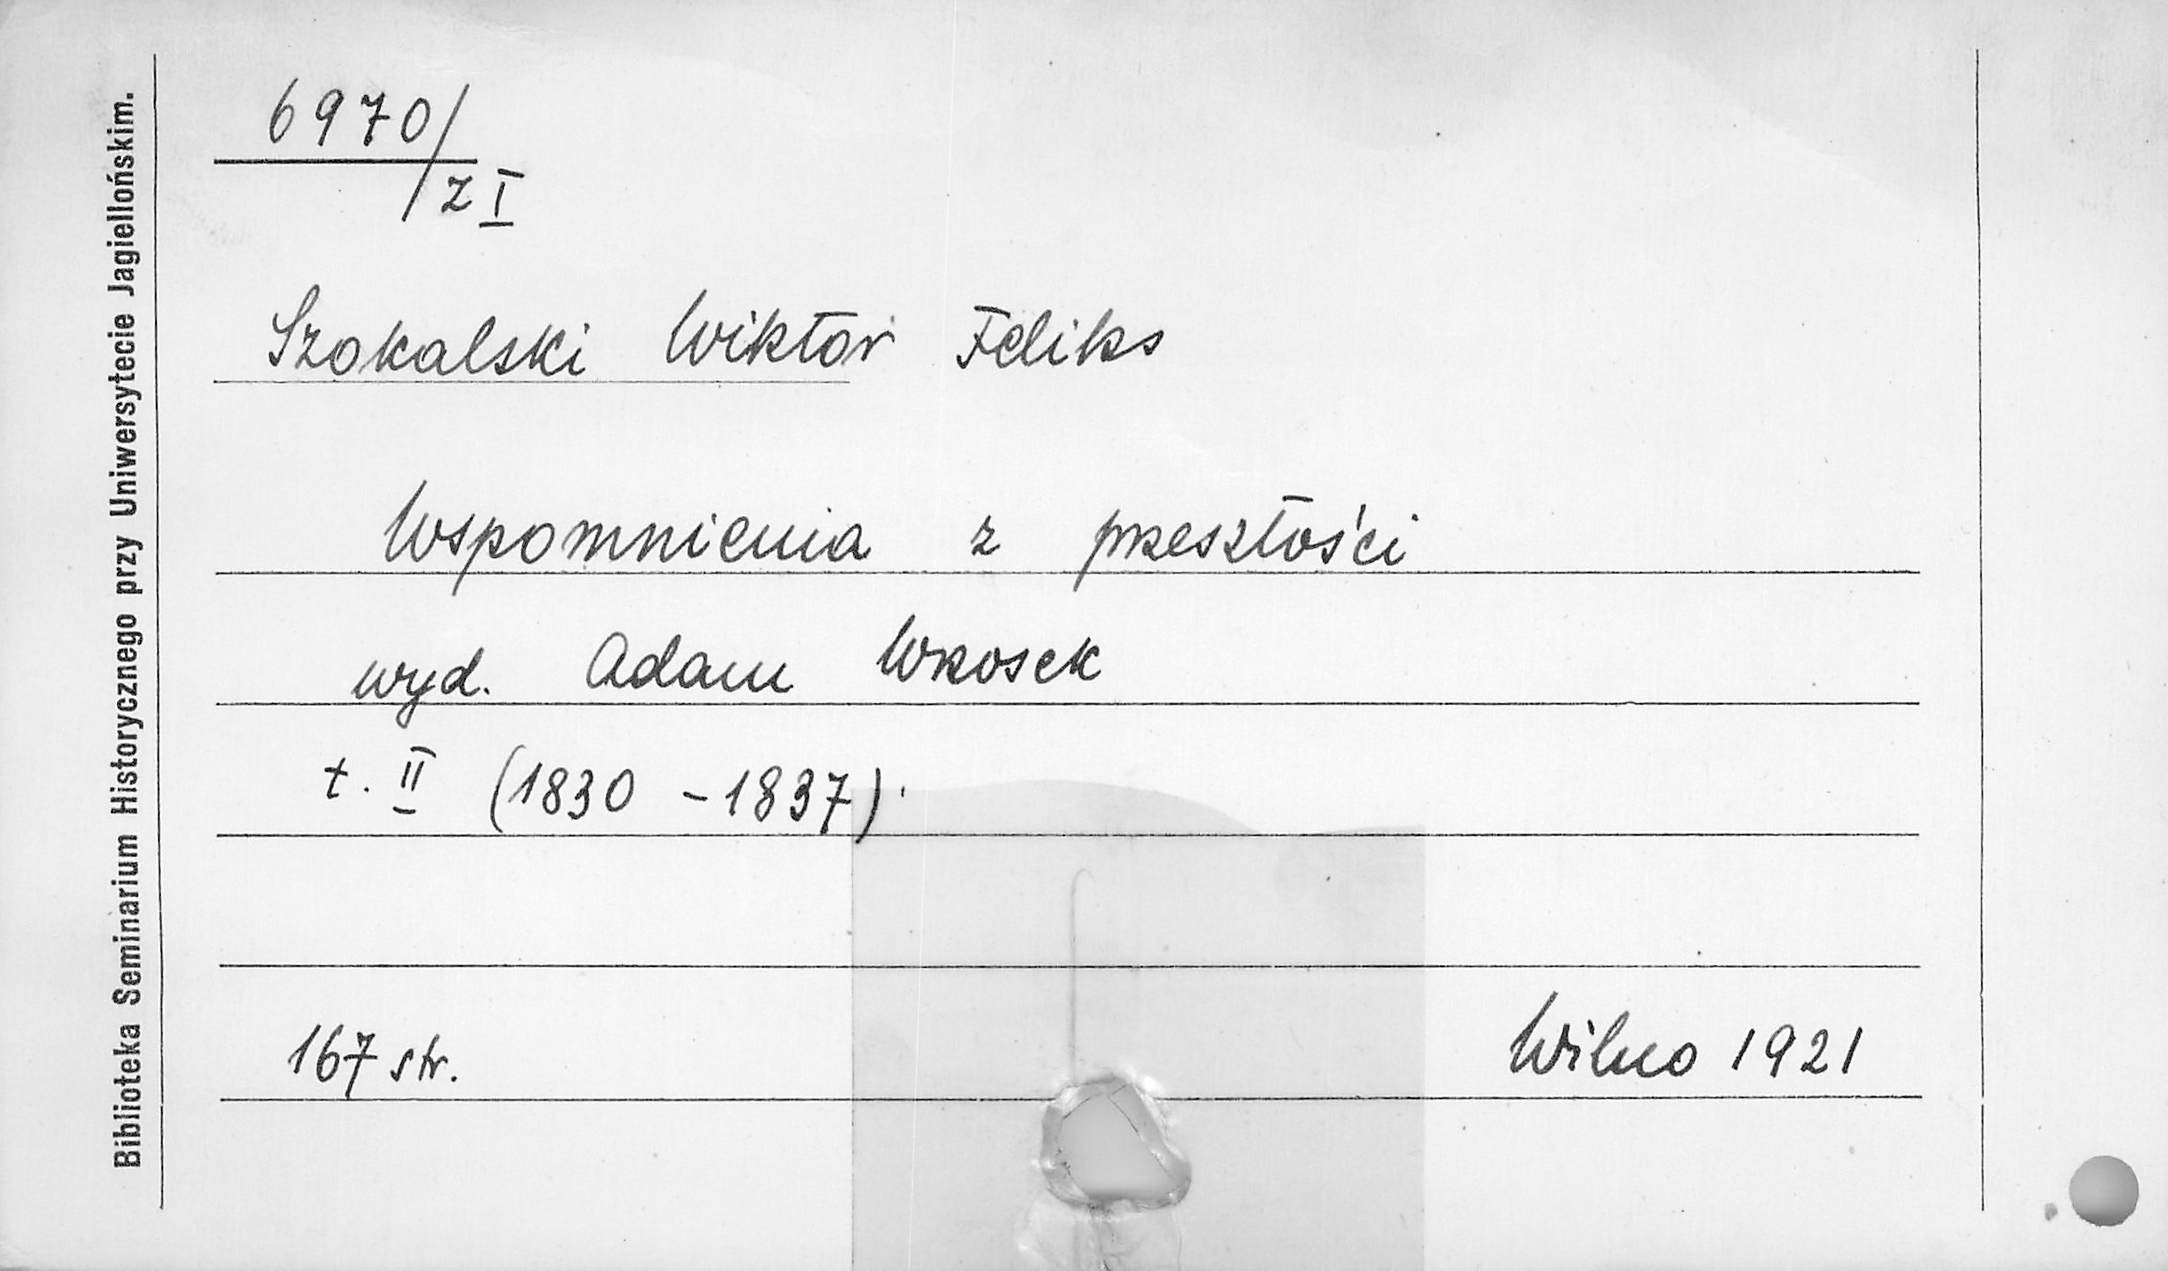 Biblioteka Seminarium Historycznego przy Uniwersytecie Jagiellońskim.
6970/
z I
Szokalski Wiktor Feliks
Wspomnienia z przeszłości
wyd. Adam Wrzosek
t. II (1830 - 1837).
167 str.
Wilno 1921